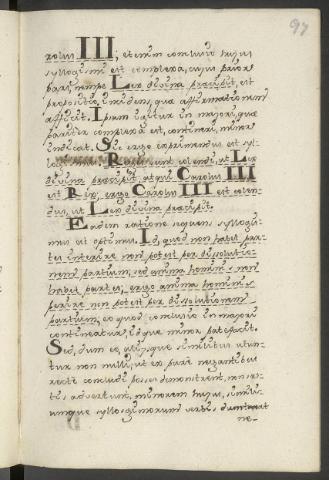 97
rolus III; etenim conclusio hujus
syllogismi est complexa, cujus prior
pars, nempe Lex divina præcipit, est
propositio incidens, quæ affirmationem
afficit. Ipsam igitur in majori, quæ
pariter complexa est, contineri, minor
indicat. Sic ergo exprimendus est syl-
Reges sunt colendi, ut Lex
divina præcipit, atqui Carolus III
est Rex; ergo Carolus III est colen-
dus, ut Lex divina præcipit.
Eadem ratione sequens syllogis-
mus est optimus. Id, quod non habet par-
tes interire non potest per dissolutio-
nem partium, sed anima hominis non
habet partes; ergo anima hominis
perire non potest per dissolutionem
partium; eo quod conclusio in majori
contineatur, idque minor patefacit.
Sed, dum ea, aliisque similibus utun-
tur non nulli, ut ex pure negantibus
recte concludi posse demonstrent, non sa-
tis advertunt, minorem hujus, simili-
umque syllogismorum verbis
ne-